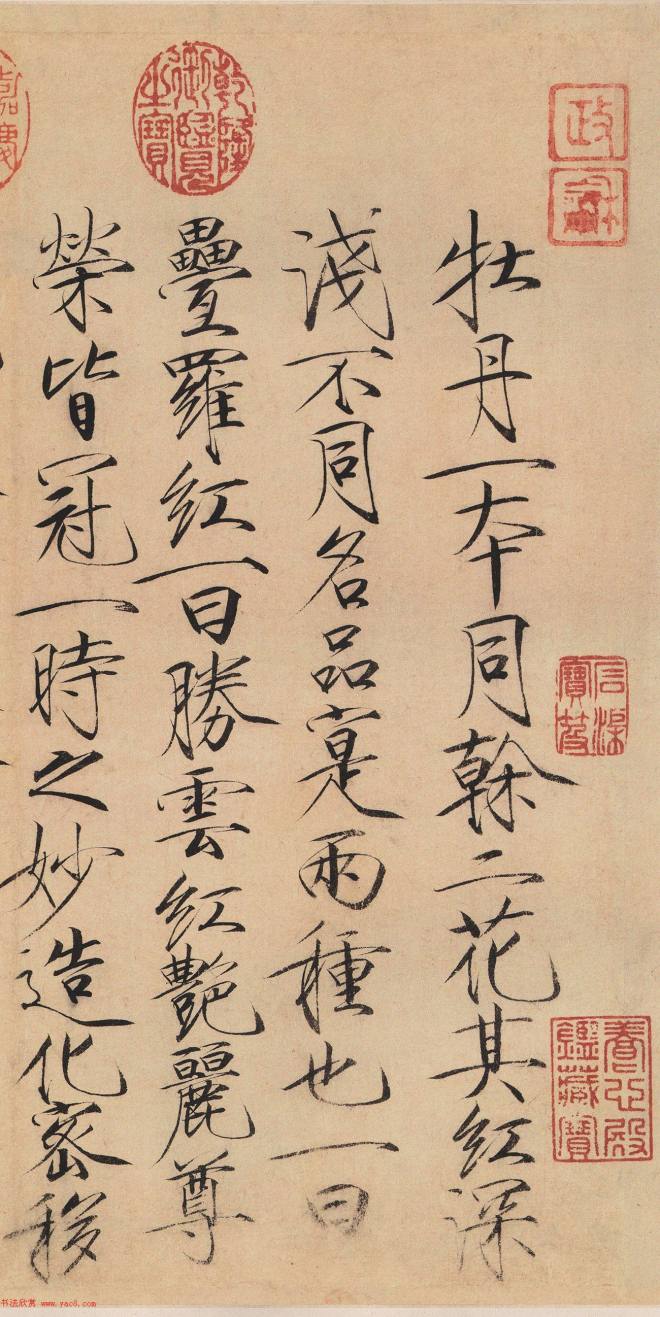 政龢
石渠寶笈
養心殿鑑藏寶
牡丹一本同榦二花其紅深
淺不同名品寔兩種也一曰
乾隆御覽之寶
疊羅紅一曰勝雲紅艷麗尊
榮皆冠一時之妙造化密移
嘉慶
书法欣赏 www.yac8.com